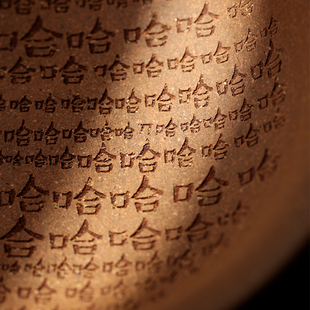 哈哈哈哈哈哈
哈哈哈哈哈
哈哈哈哈哈哈哈
哈哈哈哈哈哈哈哈哈
哈哈哈哈哈哈哈哈哈
哈哈哈哈哈哈哈哈
哈哈哈哈哈
哈哈哈哈哈
哈哈哈哈哈哈哈
哈哈哈哈哈哈